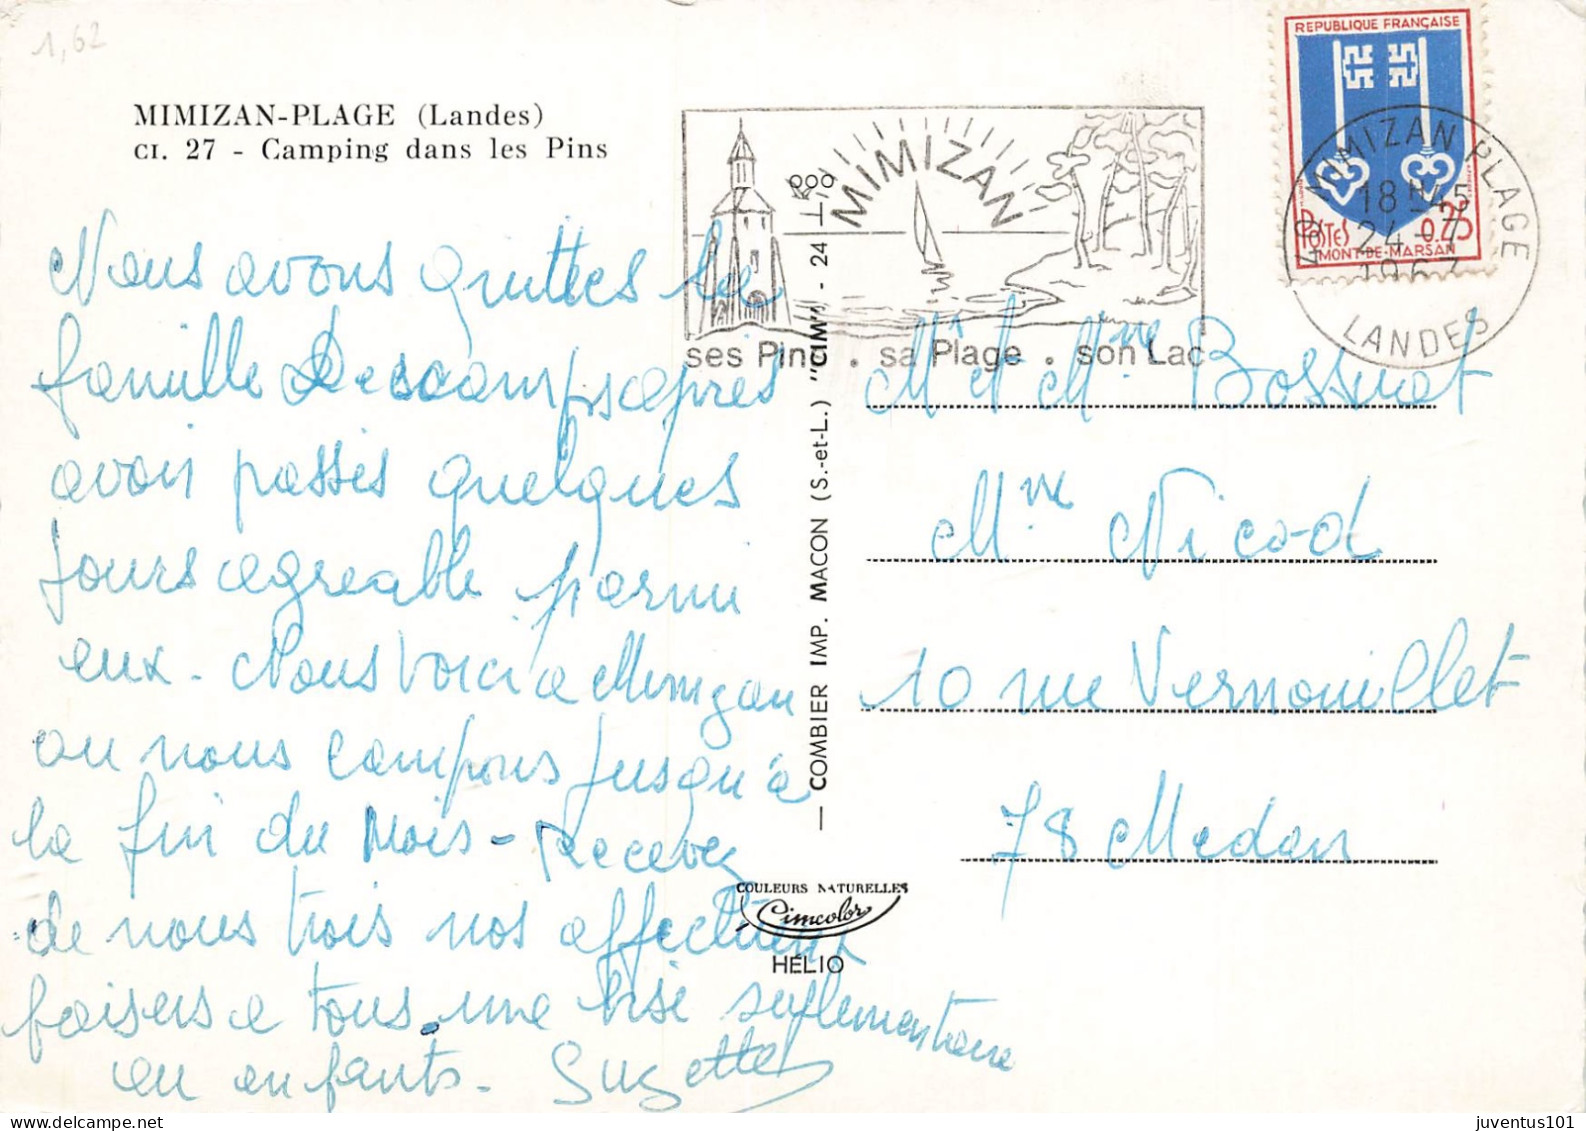 1,62
MIMIZAN-PLAGE (Landes)
CI. 27 - Camping dans les Pins
Nous avons quittes la
famille Descamps après
avoir passés quelques
jours agreable parmi
eux - Nous voici a Mimizan
ou nous campons jusqu'à
la fin du Mois - Recevez
de nous trois nos affectueux
baisers a tous. une bise suplementaire
au enfants - Suzette
MIMIZAN
ses Pins . sa Plage . son Lac
— COMBIER IMP. MACON (S.-et-L.) "CIM" - 24
COULEURS NATURELLES
Cimcolor
HÉLIO
REPUBLIQUE FRANÇAISE
POSTES 0.25
MONT-DE-MARSAN
40 MIMIZAN PLAGE
18 H 45
24 - 7
1967
LANDES
Mr et Mme Bossuat
Mme Nicod
10 rue Vernouillet
78 Medan
juventus101